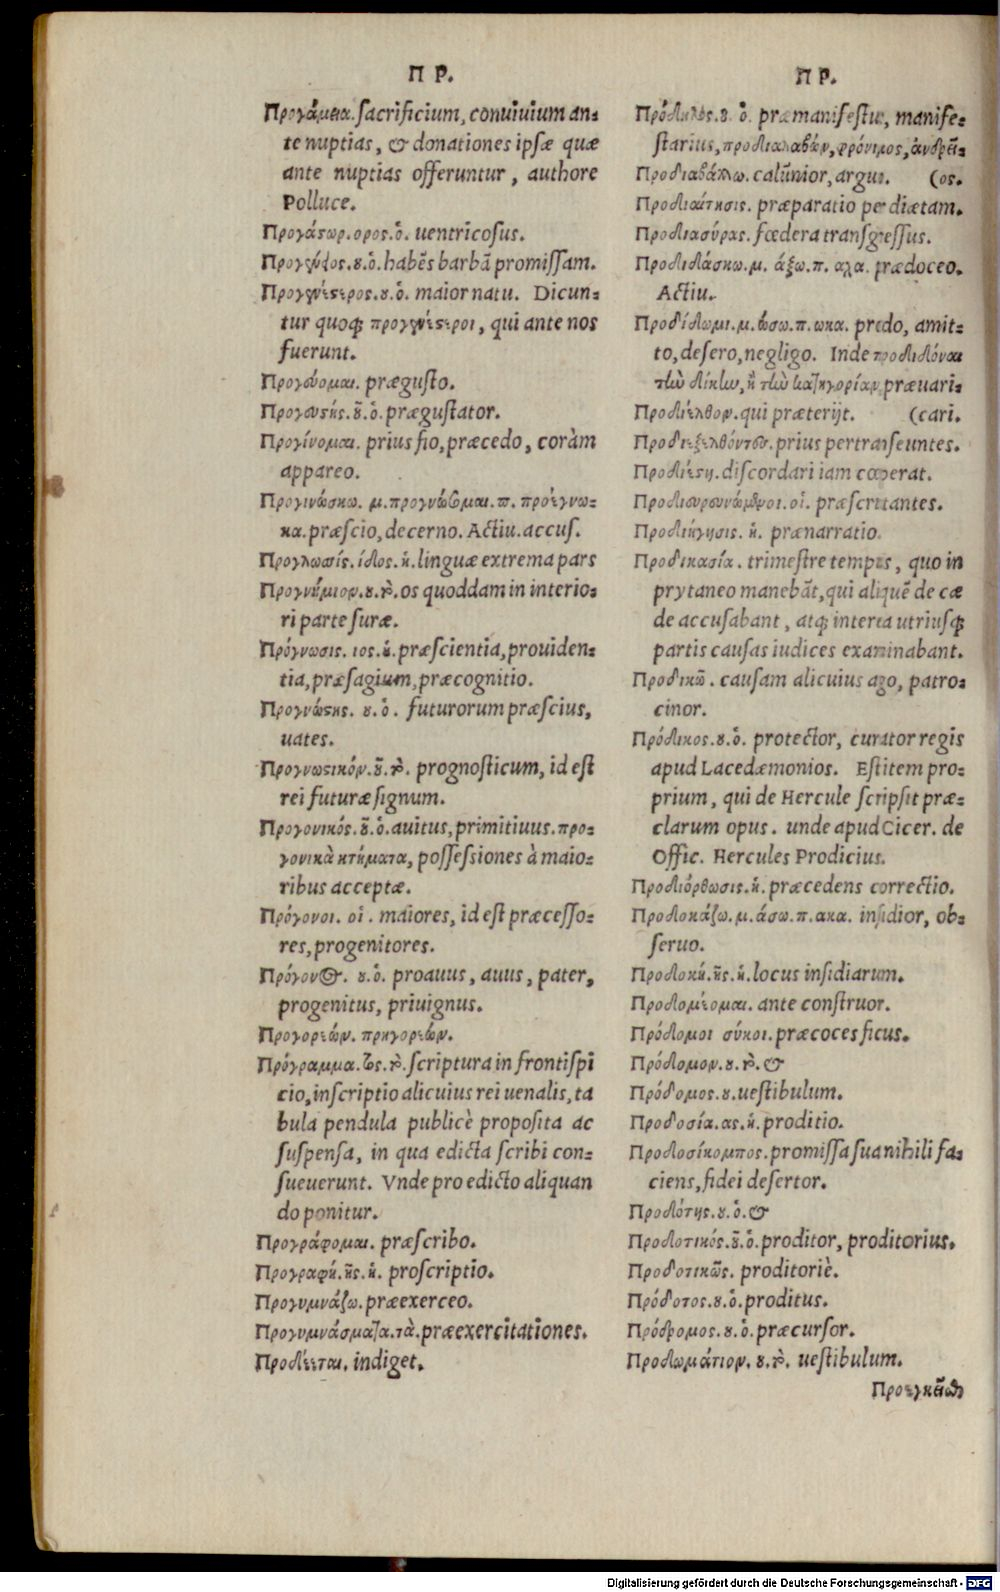 Π Ρ.
Προγάμεια. sacrificium, conuiuium an-
te nuptias, & donationes ipsæ quæ
ante nuptias offeruntur, authore
Polluce.
Προγάςωρ. ορος. ὁ. uentricosus.
Προγένειος. ου. ὁ. habēs barbā promissam.
Προγενέςερος. ου. ὁ. maior natu. Dicun-
tur quoq; προγενέςεροι, qui ante nos
fuerunt.
Προγεύομαι. prægusto.
Προγευςὴς. οῦ. ὁ. prægustator.
Προγίνομαι. prius fio, præcedo, coràm
appareo.
Προγινώσκω. μ. προγνώσομαι. π. προέγνω-
κα. præscio, decerno. Actiu. accus.
Προγλωσίς. ίδος. ἡ. linguæ extrema pars
Προγνήμιον. ου. τὸ. os quoddam in interio-
ri parte suræ.
Πρόγνωσις. ιος. ἡ. præscientia, prouiden-
tia, præsagium, præcognitio.
Προγνώςης. ου. ὁ. futurorum præscius,
uates.
Προγνωςικόν. οῦ. τὸ. prognosticum, id est
rei futuræ signum.
Προγονικός. οῦ. ὁ. auitus, primitiuus. προ-
γονικὰ κτήματα, possessiones à maio-
ribus acceptæ.
Πρόγονοι. οἱ. maiores, id est præcesso-
res, progenitores.
Πρόγονος. ου. ὁ. proauus, auus, pater,
progenitus, priuignus.
Προγορεών. πρηγορεών.
Πρόγραμμα. τος. τὸ. scriptura in frontispi
cio, inscriptio alicuius rei uenalis, ta
bula pendula publicè proposita ac
suspensa, in qua edicta scribi con-
sueuerunt. Vnde pro edicto aliquan
do ponitur.
Προγράφομαι. præscribo.
Προγραφὴ. ῆς. ἡ. proscriptio.
Προγυμνάζω. præexerceo.
Προγυμνάσματα. τὰ. præexercitationes.
Προδέεται. indiget.
Π Ρ.
Πρόδηλος. ου. ὁ. præmanifestus, manife-
starius, προδιαλαβών, φρόνιμος, ἀνδρεῖ-
Προδιαβάλλω. calūnior, arguo. (ος.
Προδιαίτησις. præparatio per diætam.
Προδιασύρας. fœdera transgressus.
Προδιδάσκω. μ. άξω. π. αχα. prædoceo.
Actiu.
Προδίδωμι. μ. ώσω. π. ωκα. prodo, amit-
to, desero, negligo. Inde προδιδόναι
τὴν δίκην, ἢ τὴν κατηγορίαν præuari-
Προδιελθον. qui præterijt. (cari.
Προδιεξελθόντες. prius pertranseuntes.
Προδιέςη. discordari iam cœperat.
Προδιευρευνώμενοι. οἱ. præscrutantes.
Προδιήγησις. ἡ. prænarratio.
Προδικασία. trimestre tempus, quo in
prytaneo manebāt, qui aliquē de cæ
de accusabant, atq; interea utriusq;
partis causas iudices examinabant.
Προδικῶ. causam alicuius ago, patro-
cinor.
Πρόδικος. ου. ὁ. protector, curator regis
apud Lacedæmonios. Est item pro-
prium, qui de Hercule scripsit præ-
clarum opus. unde apud Cicer. de
Offic. Hercules Prodicius.
Προδιόρθωσις. ἡ. præcedens correctio.
Προδοκάζω. μ. άσω. π. ακα. insidior, ob-
seruo.
Προδοκή. ῆς. ἡ. locus insidiarum.
Προδομέομαι. ante construor.
Πρόδομοι σύκοι. præcoces ficus.
Πρόδομον. ου. τὸ. &
Πρόδομος. ου. uestibulum.
Προδοσία. ας. ἡ. proditio.
Προδοσίκομπος. promissa sua nihili fa-
ciens, fidei desertor.
Προδότης. ου. ὁ. &
Προδοτικός. οῦ. ὁ. proditor, proditorius.
Προδοτικῶς. proditoriè.
Πρόδοτος. ου. ὁ. proditus.
Πρόδρομος. ου. ὁ. præcursor.
Προδωμάτιον. ου. τὸ. uestibulum.
Προεγκεῖσθ
Digitalisierung gefördert durch die Deutsche Forschungsgemeinschaft - DFG